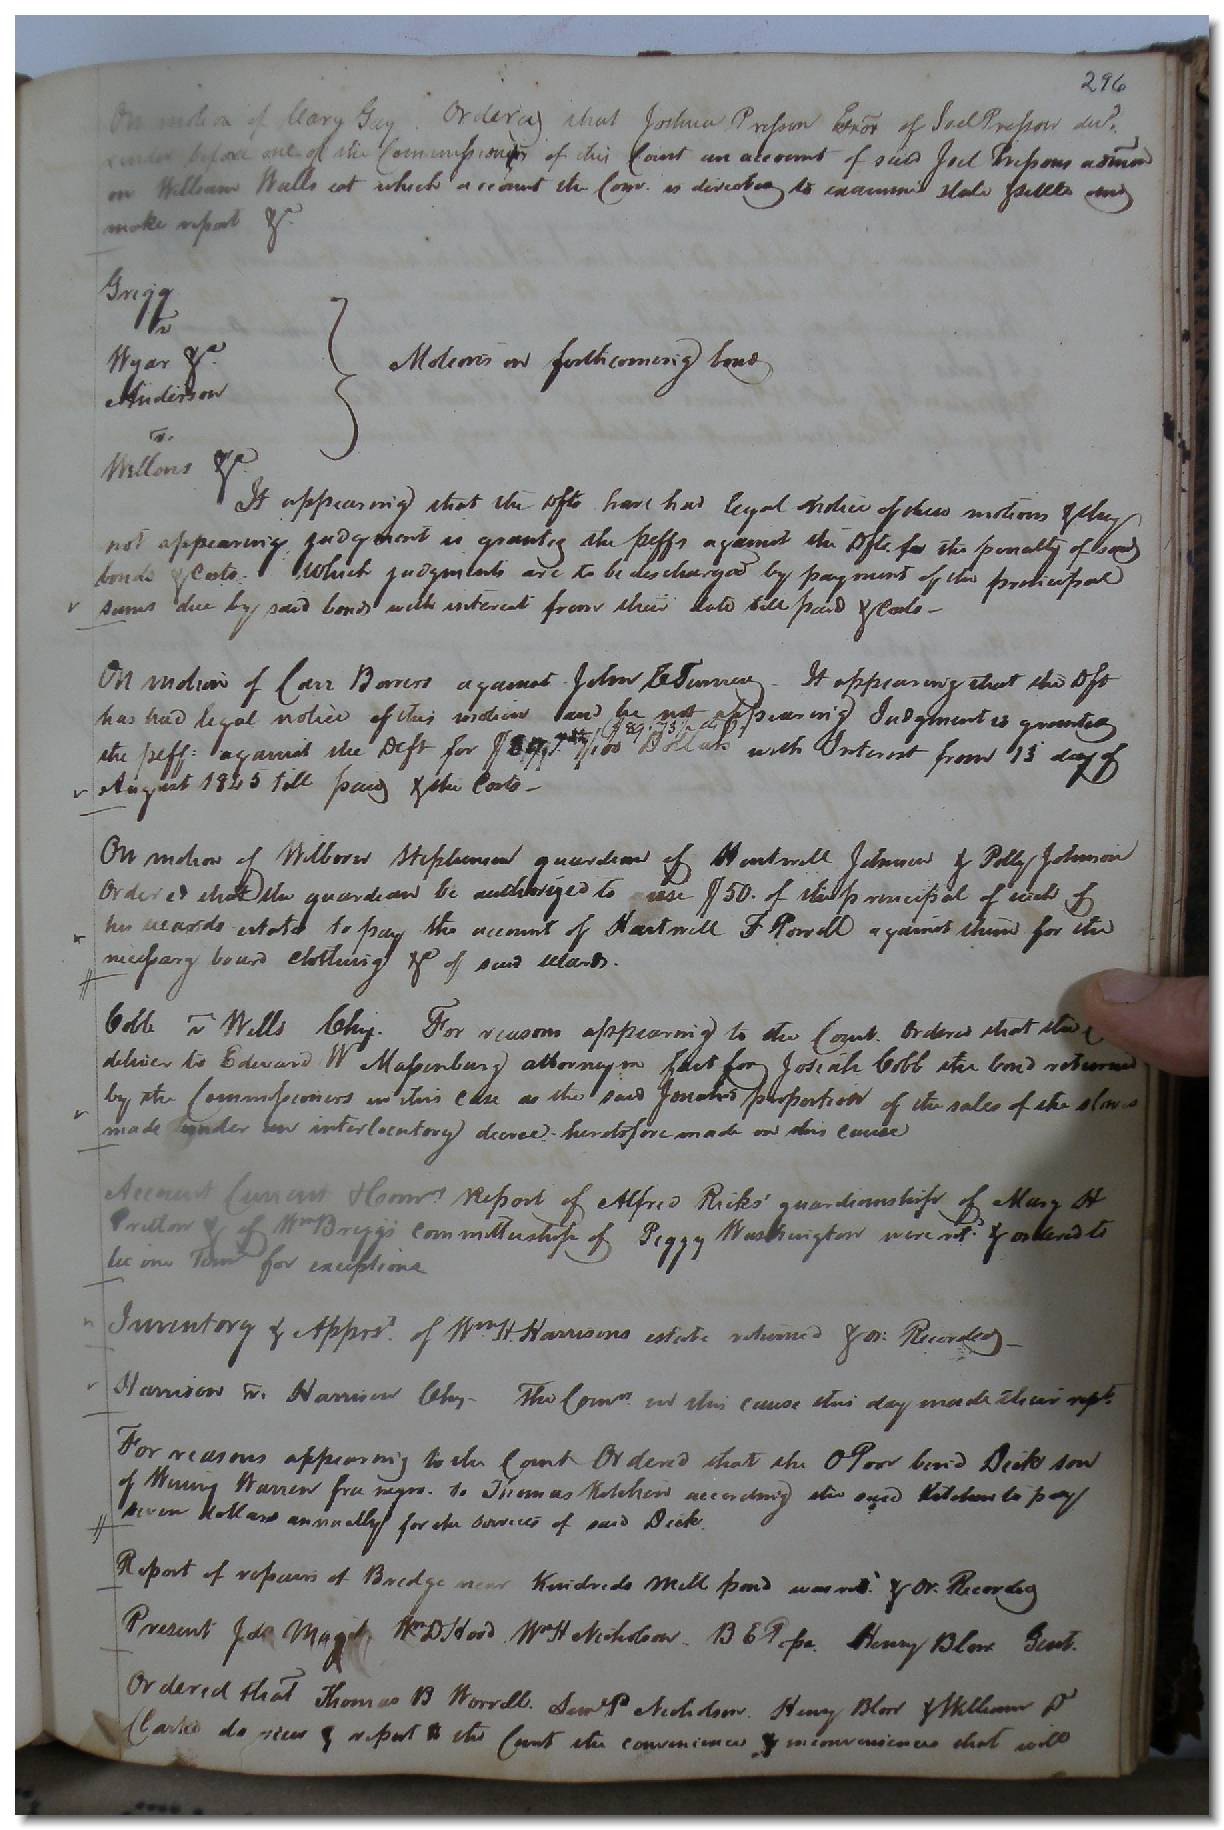 296
On motion of Mary Gay. Ordered that Joshua Presson Exor of Joel Presson decd.
render before one of the Commissioners of this Court an account of said Joel Pressons admon
on William Walls est which account the Comr. is directed to examine state & settle and
make report &c.
Gregg
vs
Wyar &c.
Anderson
vs.
Wellons &c
Motions on forthcoming bond
It appearing that the Dfts have had legal notice of these motions & they
not appearing judgment is granted the plffs against the Dfts. for the penalty of said
bonds & Costs. Which judgments are to be discharged by payment of the principal
sums due by said bonds with interest from their date till paid & Costs -
On motion of Carr Bowers against John Turner - It appearing that the Dft
has had legal notice of this motion and he not appearing Judgment is granted
the plff: against the Deft for Dollars with Interest from 15 day of
August 1845 till paid & the Costs -
On motion of Wilborn Stephenson guardian of Hartwell Johnson & Polly Johnson
Ordered that the guardian be authorized to use $50. of the principal of each of
his wards estate to pay the account of Hartwell F Powell against them for the
necessary board clothing &c of said wards.
Cobb vs Wells Chy. For reasons appearing to the Court. Ordered that the
deliver to Edward W Massenburg attorney in fact for Josiah Cobb the bond returned
by the Commissioners in this case as the said proportion of the sales of the slaves
made under an interlocutory decree heretofore made in this cause
Account Current & Comrs Report of Alfred Ricks' guardianship of Mary H
Pretlow & of Wm Briggs committeeship of Peggy Washington were retd. & ordered to
lie one Term for exceptions
Inventory & Apprst. of Wm H. Harrisons estate returned & or: Recorded -
Harrison vs. Harrison Chy - The Comrs in this cause this day made their rept.
For reasons appearing to the Court Ordered that the O Poor bind Dick son
of Warren free negro. to Thomas Kitchen according the said Kitchen to pay
seven dollars annually for the services of said Dick.
Report of repairs of Bridge near Kindreds Mill pond was retd. & Or. Recorded
Present Wm D Hood Wm H Nicholson. B E Pope. Henry Blow Gent.
Ordered that Thomas B Worrell. Nicholson. Henry Blow & William
Clarke do view & report to the Court the conveniences & inconveniences that will